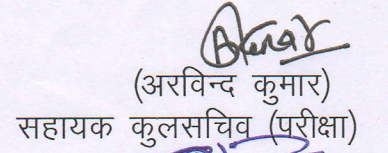 (अरविन्द कुमार)
सहायक कुलसचिव (परीक्षा)